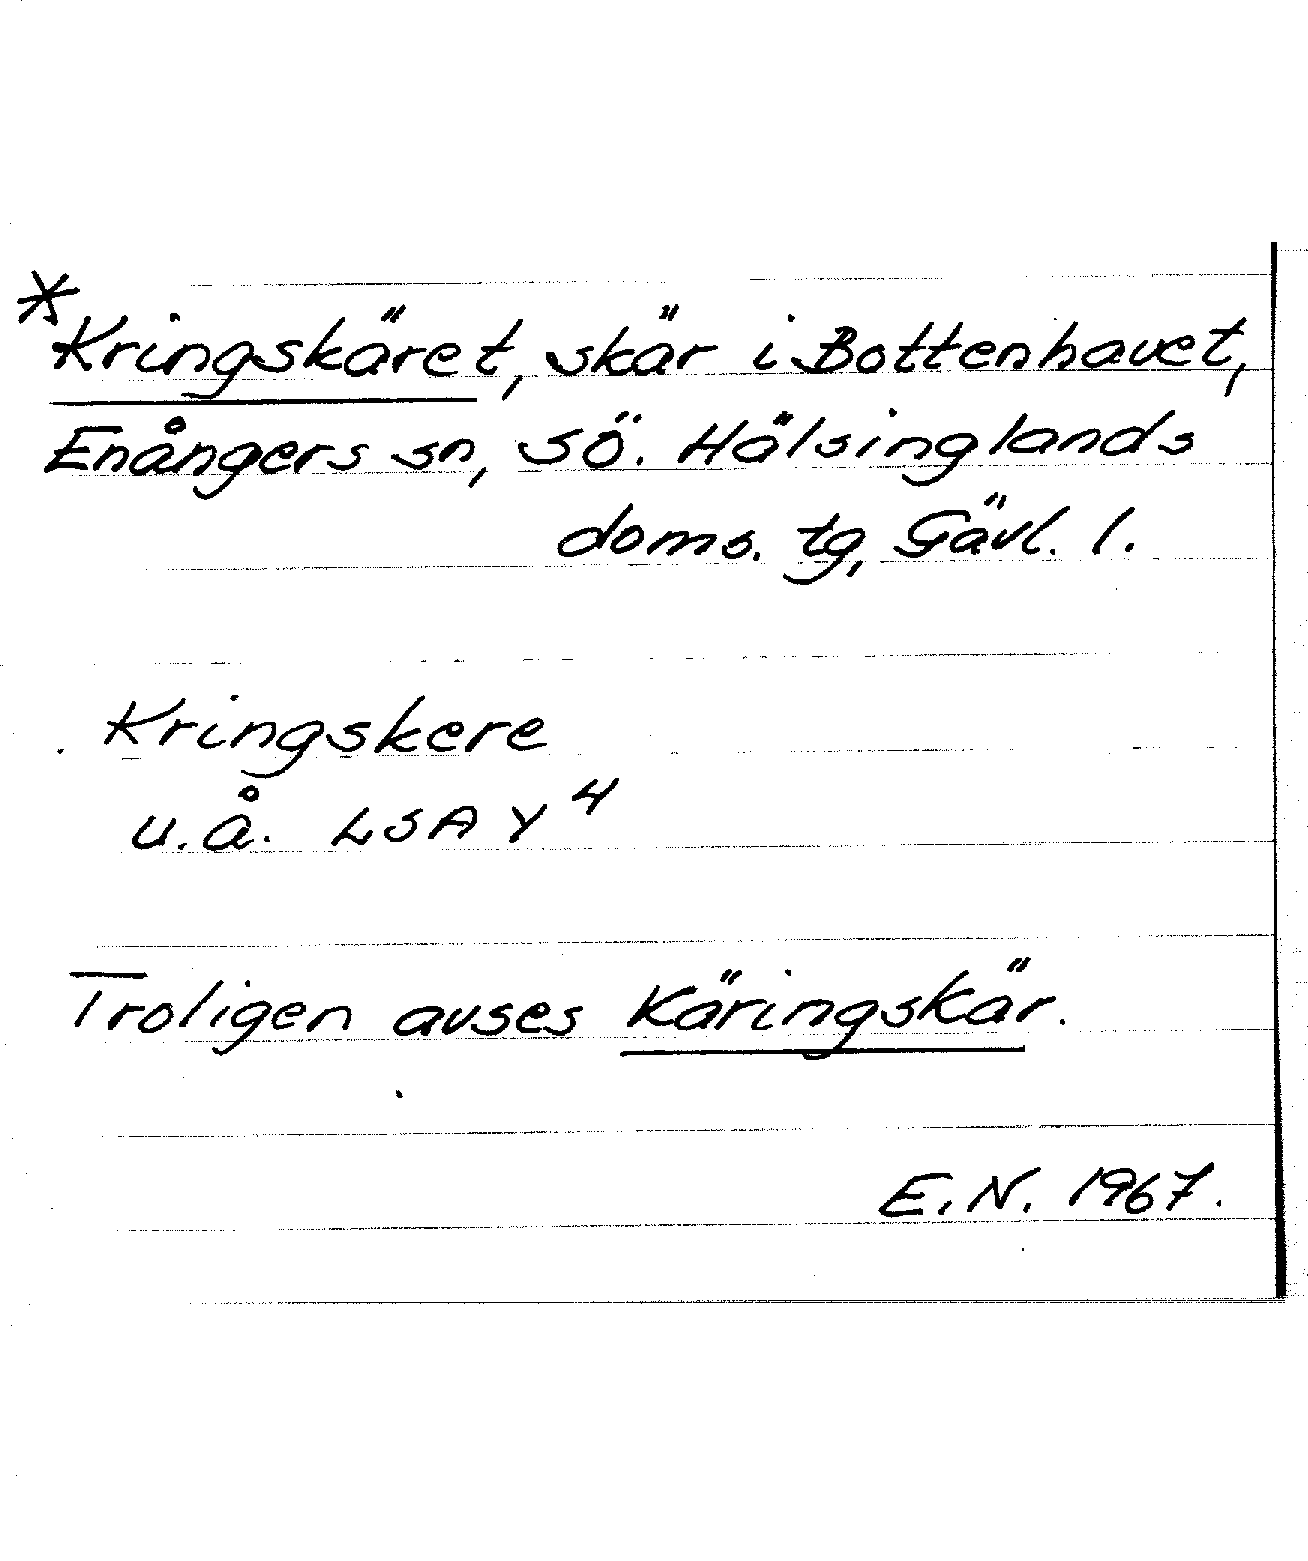 *Kringskäret, skär i Bottenhavet,
Enångers sn, SÖ. Hälsinglands
doms. tg, Gävl. l.
Kringskere
u.å. LSA Y 4
Troligen avses Käringskär.
E.N. 1967.